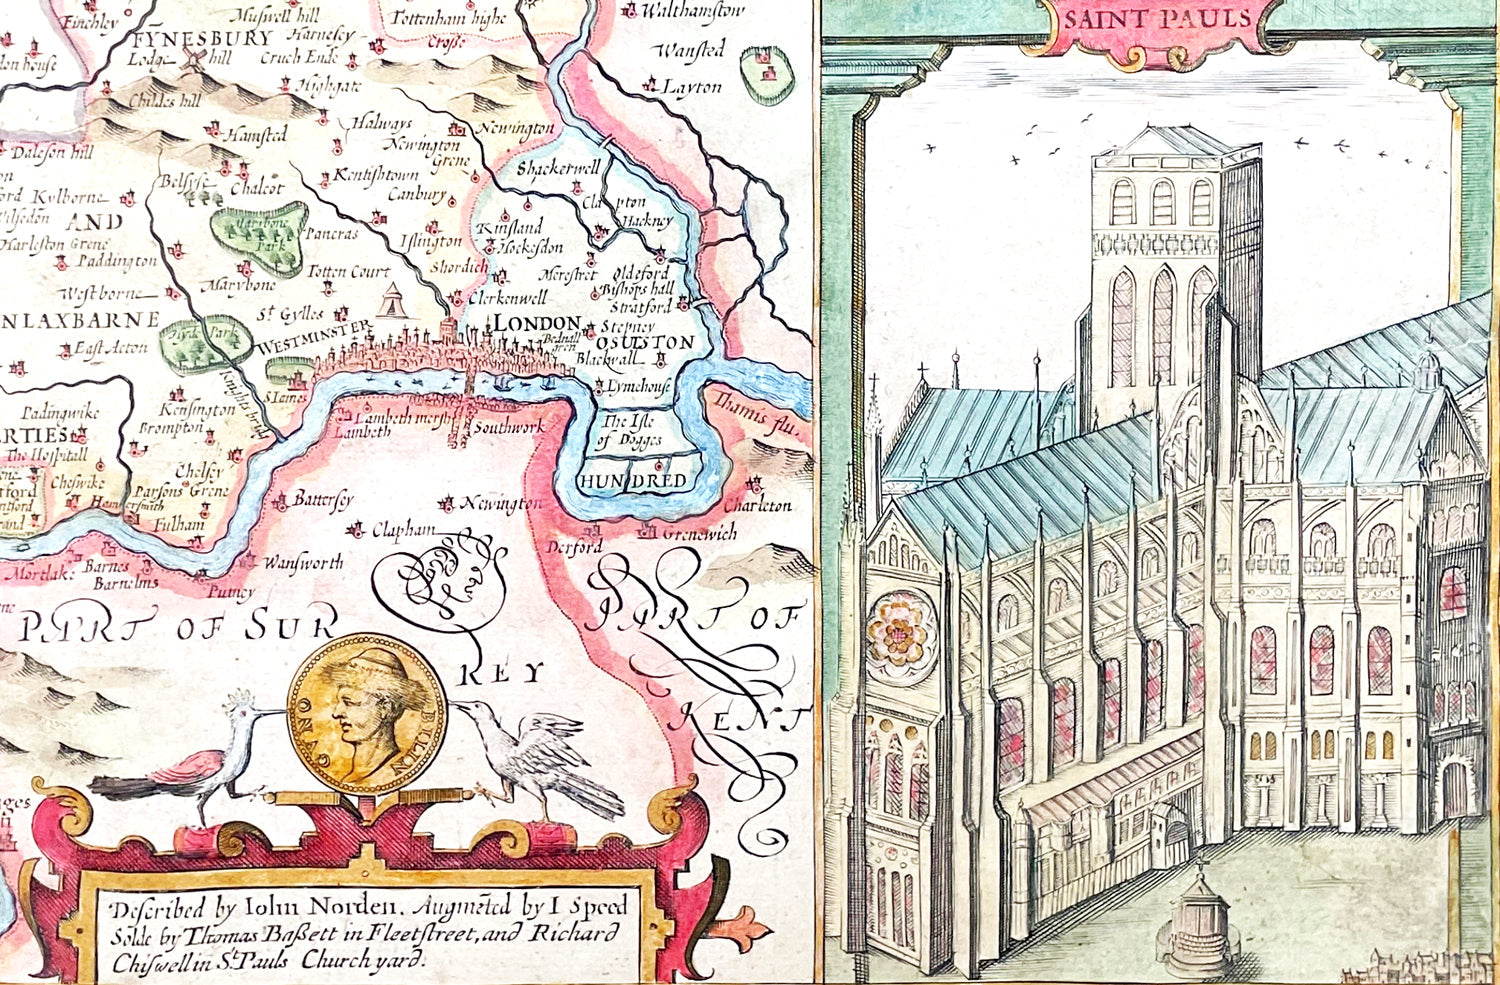 SAINT PAULS
Finchley
Muswell hill
Tottenham highe
Crosse
Walthamstow
FYNESBURY
Harnesey
Lodge
hill
Cruch Ende
Wansted
Highgate
Layton
Childes hill
Hamsted
Halways
Newington
Newington
Grene
Daleson hill
Shackerwell
Belsyse
Chalcot
Kentishtown
Canbury
Kylborne
Clapton
Hackney
AND
Maribone
Park
Pancras
Islington
Kinsland
Hockesdon
Harleston Grene
Paddington
Totten Court
Shordich
Merestret
Oldeford
Marybone
Bishops hall
Westborne
Clerkenwell
Stratford
NLAXBARNE
St Gylles
LONDON
Stepney
Hyde Park
WESTMINSTER
Bednall
gren
OSULSTON
East Acton
Blackwall
Knights brid
S. Iames
Lymehouse
Kensington
Padingwike
Lambeth mersh
The Isle
of Dogges
Thamis flu.
ERTIES
Brompton
Lambeth
Southwork
The Hospitall
Chelsey
HUNDRED
Cheswike
Parsons Grene
Battersey
Newington
Charleton
Hammersmith
Fulham
Clapham
Derford
Grenewich
Wansworth
Mortlake
Barnes
Barnelms
Putney
PART OF SUR
REY
PART OF
KENT
CANO
BILIN
Described by Iohn Norden. Augmēted by I Speed
Solde by Thomas Baßett in Fleetstreet, and Richard
Chiswell in St. Pauls Church yard.